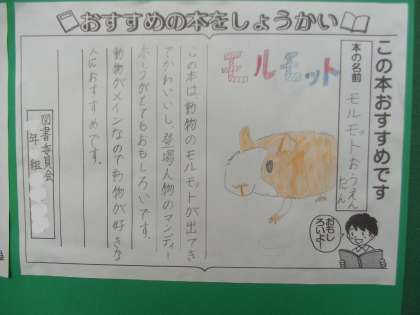 おすすめの本をしょうかい
この本おすすめです
本の名前
モルモットおうえん
たん
おもし
ろいよ!
モルモット
この本は動物のモルモットが出てき
てかわいいし、登場人物のマンディー
ホープがとてもおもしろいです。
動物がメインなので動物が好きな
人におすすめです。
図書委員会
年 組